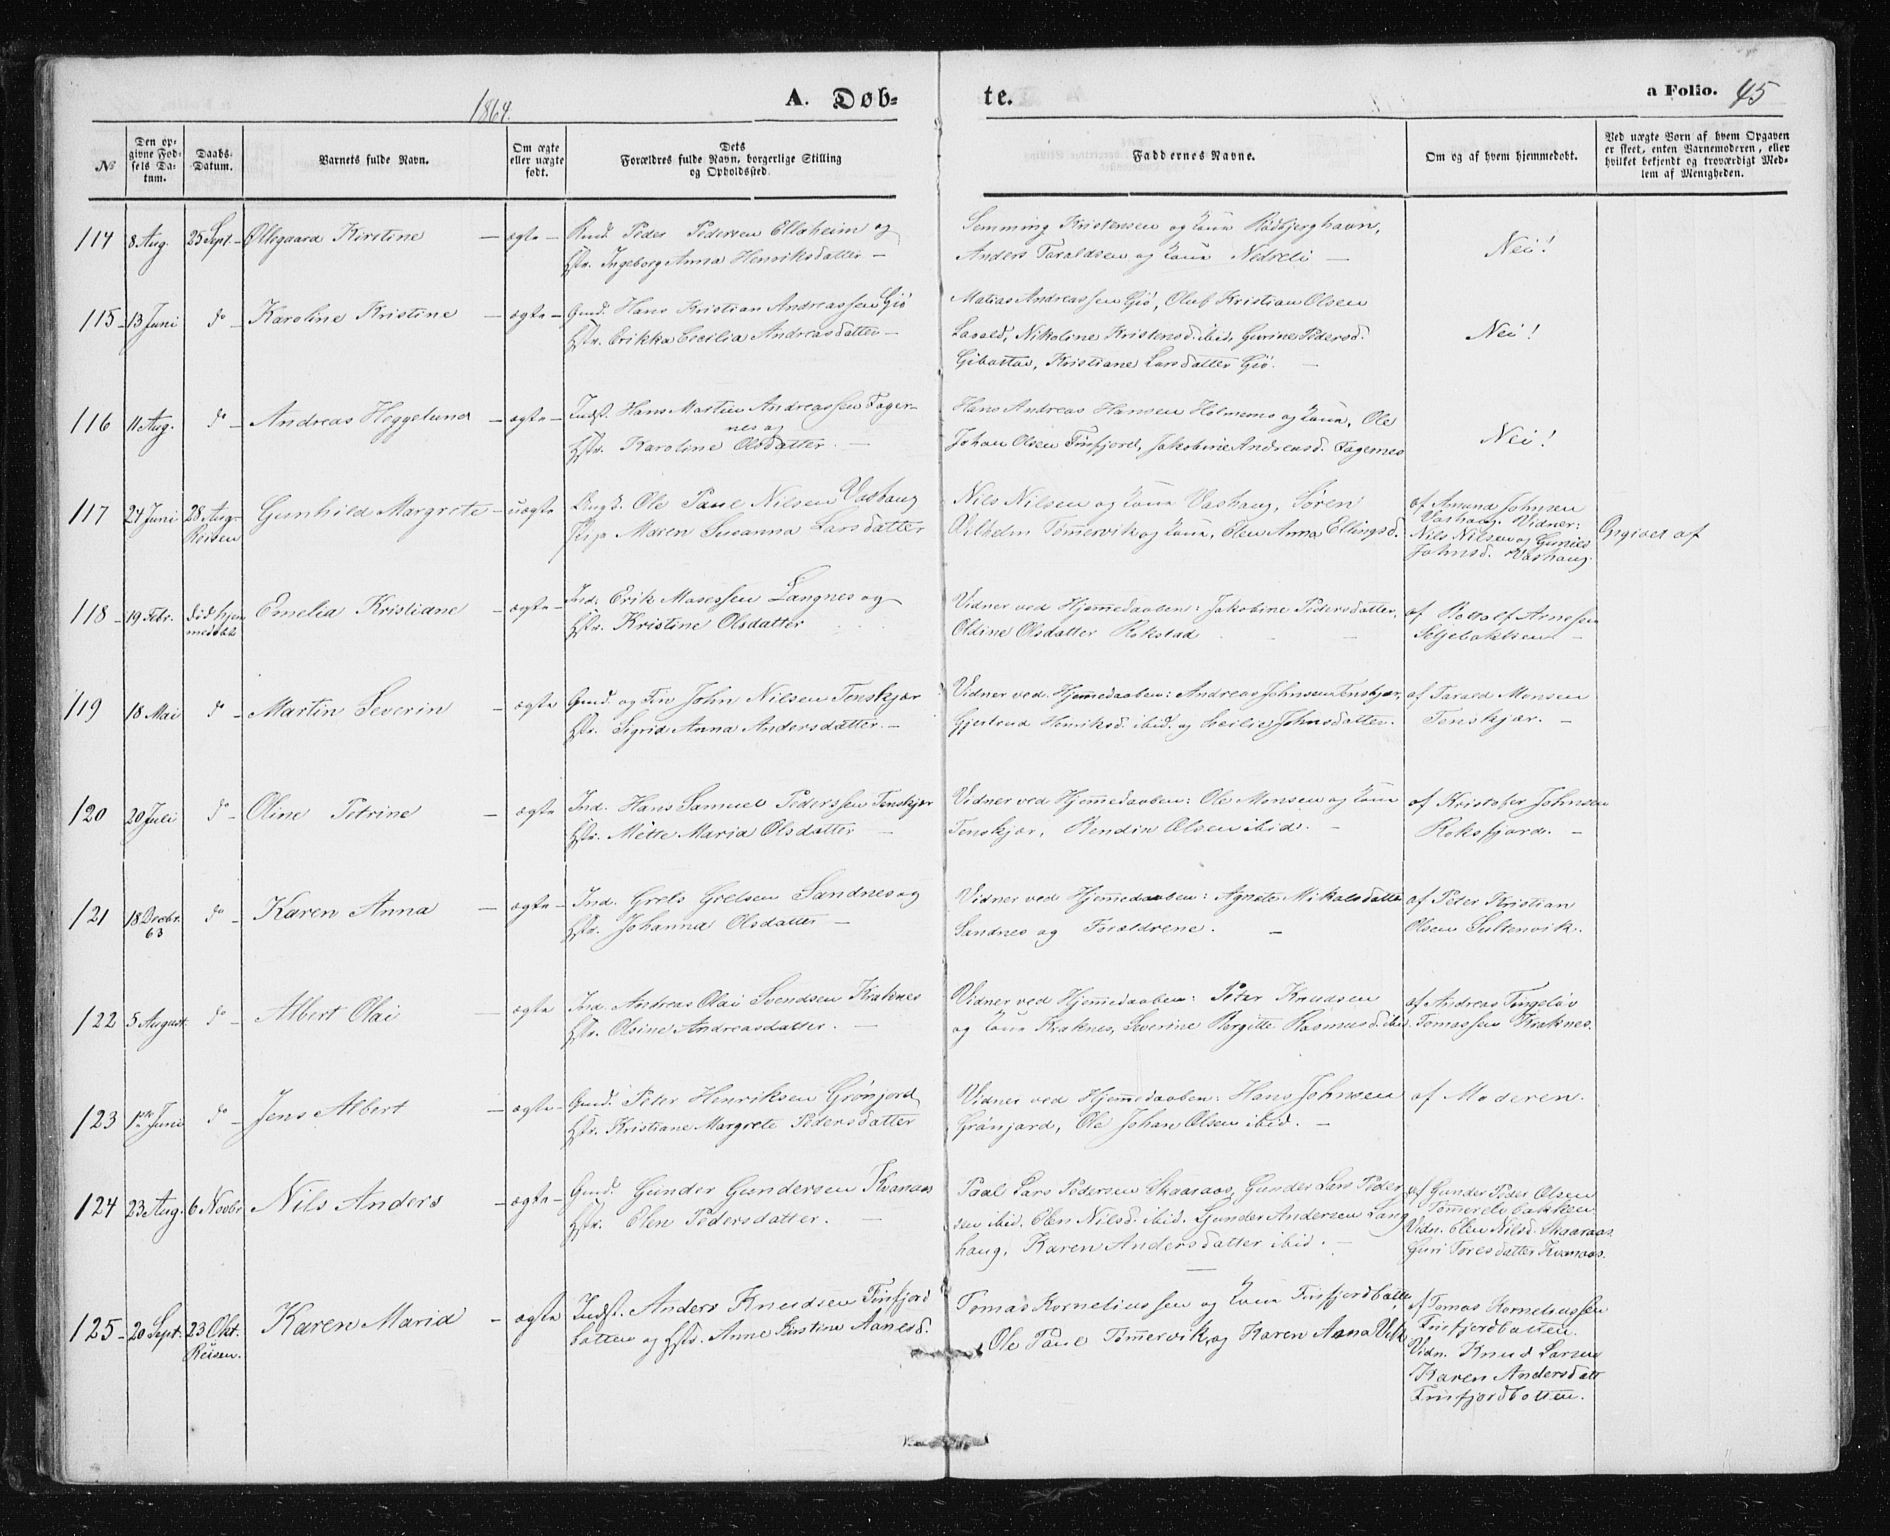 1864.
A. Døb-
te.
a Folio. 45
No
Den op-
givne Fød-
sels Da-
tum.
Daabs-
Datum.
Barnets fulde Navn.
Om ægte
eller uægte
født.
Dets
Forældres fulde Navn, borgerlige Stilling
og Opholdssted.
Faddernes Navne.
Om og af hvem hjemmedøbt.
Ved uægte Børn af hvem Opgaven
er skeet, enten Barnemoderen, eller
hvilket bekjendt og troværdigt Med-
lem af Menigheden.
114 8 Aug. 25 Sept. Ollegaard Kirstine – ægte –
Peder Pedersen Ellaheim og
Hstr. Ingeborg Anna Henriksdatter –
Semming Kristensen og Kone Rødbjerghavn,
Anders Taraldsen og Kone Nedreli –
Nei!
115 13 Juni do – Karoline Kristine – ægte –
Gmd. Hans Kristian Andreassen Giø
Hstr. Erikka Cecilia Andreasdatter –
Matias Andreassen Giø, Oluf Kristian Olsen
Laveld, Nikoline Kristensd. ibid, Gurine Pedersd.
Gibostad, Kristiane Larsdatter Giø. –
Nei!
116 11 Aug. do – Andreas Heggelund – ægte –
Indst. Hans Martin Andreassen Fager-
nes og
Hstr. Karoline Olsdatter. –
Hans Andreas Hansen Holmenes og Kone, Ole
Johan Olsen Finfjord, Jakobine Andreasd. Fagernes
Nei!
117 24 Juni 28 Aug. Reisen Gunhild Margrete – uægte
Ungk. Ole Paul Nilsen Vashaug
Pige Maren Susanna Larsdatter
Nils Nilsen og Kone Vashaug, Søren
Vilhelm Tømmervik og Kone, Elen Anna Ellingsd.
af Amund Johnsen
Vashaug. Vidner:
Nils Nilsen og Gunies
Johnsd. Vashaug.
Opgivet af
118 19 Febr. Did hjem medøbt Emelia Kristiane – ægte –
Ind. Erik Mosessen Langnes og
Hstr. Kristine Olsdatter
Vidner ved Hjemmedaaben: Jakobine Pedersdatter,
Oldine Olsdatter Rokstad –
af Rottolf Arnesen
Seljebakken –
119 18 Mai do – Martin Severin – ægte
Gmd. og Fin John Nilsen Tenskjær
Hstr. Sigrid Anna Andersdatter –
Vidner ved Hjemmedaaben: Andreas Johnsen Tenskjær,
Gjertrud Henriksd. ibid. og Cecilie Johnsdatter.
af Tarald Monsen
Tenskjær. –
120 20 Juli do – Oline Petrine – ægte
Ind. Hans Samuel Pederssen Tenskjær
Hstr. Mette Maria Olsdatter –
Vidner ved Hjemmedaaben: Ole Monsen og Kone
Tenskjær, Rendin Olsen ibid. –
af Kristofer Johnsen
Roksfjord. –
121 18 Decbr. 63 do – Karen Anna – ægte –
Ind. Grels Grelsen Sandnes og
Hstr. Johanna Olsdatter –
Vidner ved Hjemmedaaben: Agnete Mikalsdatter
Sandnes og Forældrene. –
af Peter Kristian
Olsen Sultenvik.
122 5 August. do – Albert Olai – ægte
Ind. Andreas Olai Svendsen Kraknes
Hstr. Olsine Andreasdatter. –
Vidner ved Hjemmedaaben: Peter Knudsen
og Kone Kraknes, Severine Birgitte Rasmusd. ibid.
af Andreas Fingeløv
Tomassen Kraknes.
123 1ste Juni do – Jens Albert – ægte –
Gmd. Peter Henriksen Grønjord
Hstr. Kristiane Margrete Pedersdatter
Vidner ved Hjemmedaaben: Hans Johnsen
Grønjord, Ole Johan Olsen ibid. –
af Moderen.
124 23 Aug. 6 Novbr. Nils Anders – ægte –
Gmd. Gunder Gundersen Kvanaas
Hstr. Elen Pedersdatter. –
Paal Lars Pedersen Skaaraas, Gunder Lars Peder
sen ibid. Elen Nilsd. ibid. Gunder Andersen Lang
haug, Karen Andersdatter ibid. –
af Gunder Peder Olsen
Tømmerelvbakken
Vidn. Elen Nilsd. Skaaraas.
Guri Toresdatter Kvanaas.
125 – 20 Sept. 23 Okt. Reisen. Karen Maria – ægte
Indst. Anders Knudsen Finfjord
botten og Hstr. Anne Kirstine Aanesd.
Tomas Korneliussen og Kone Finfjordbotten,
Ole Paul Tømmervik og Karen Anna Vilh
af Tomas Korneliussen
Finfjordbotten.
Vidn. Knud Larsen
Karen Andersdatt
Finfjordbotten.